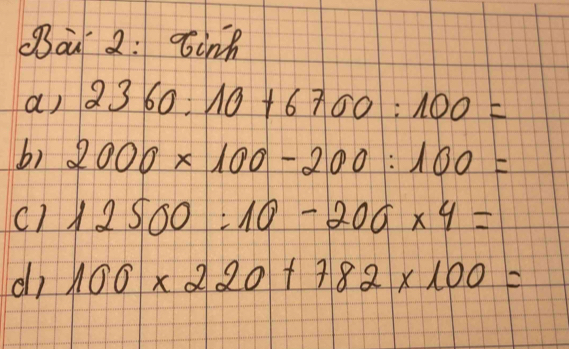 Bài 2: Tính
a) 2360 : 10 + 6700 : 100 =
b) 2000 × 100 - 200 : 100 =
c) 12500 : 10 - 200 × 4 =
d) 100 × 220 + 782 × 100 =